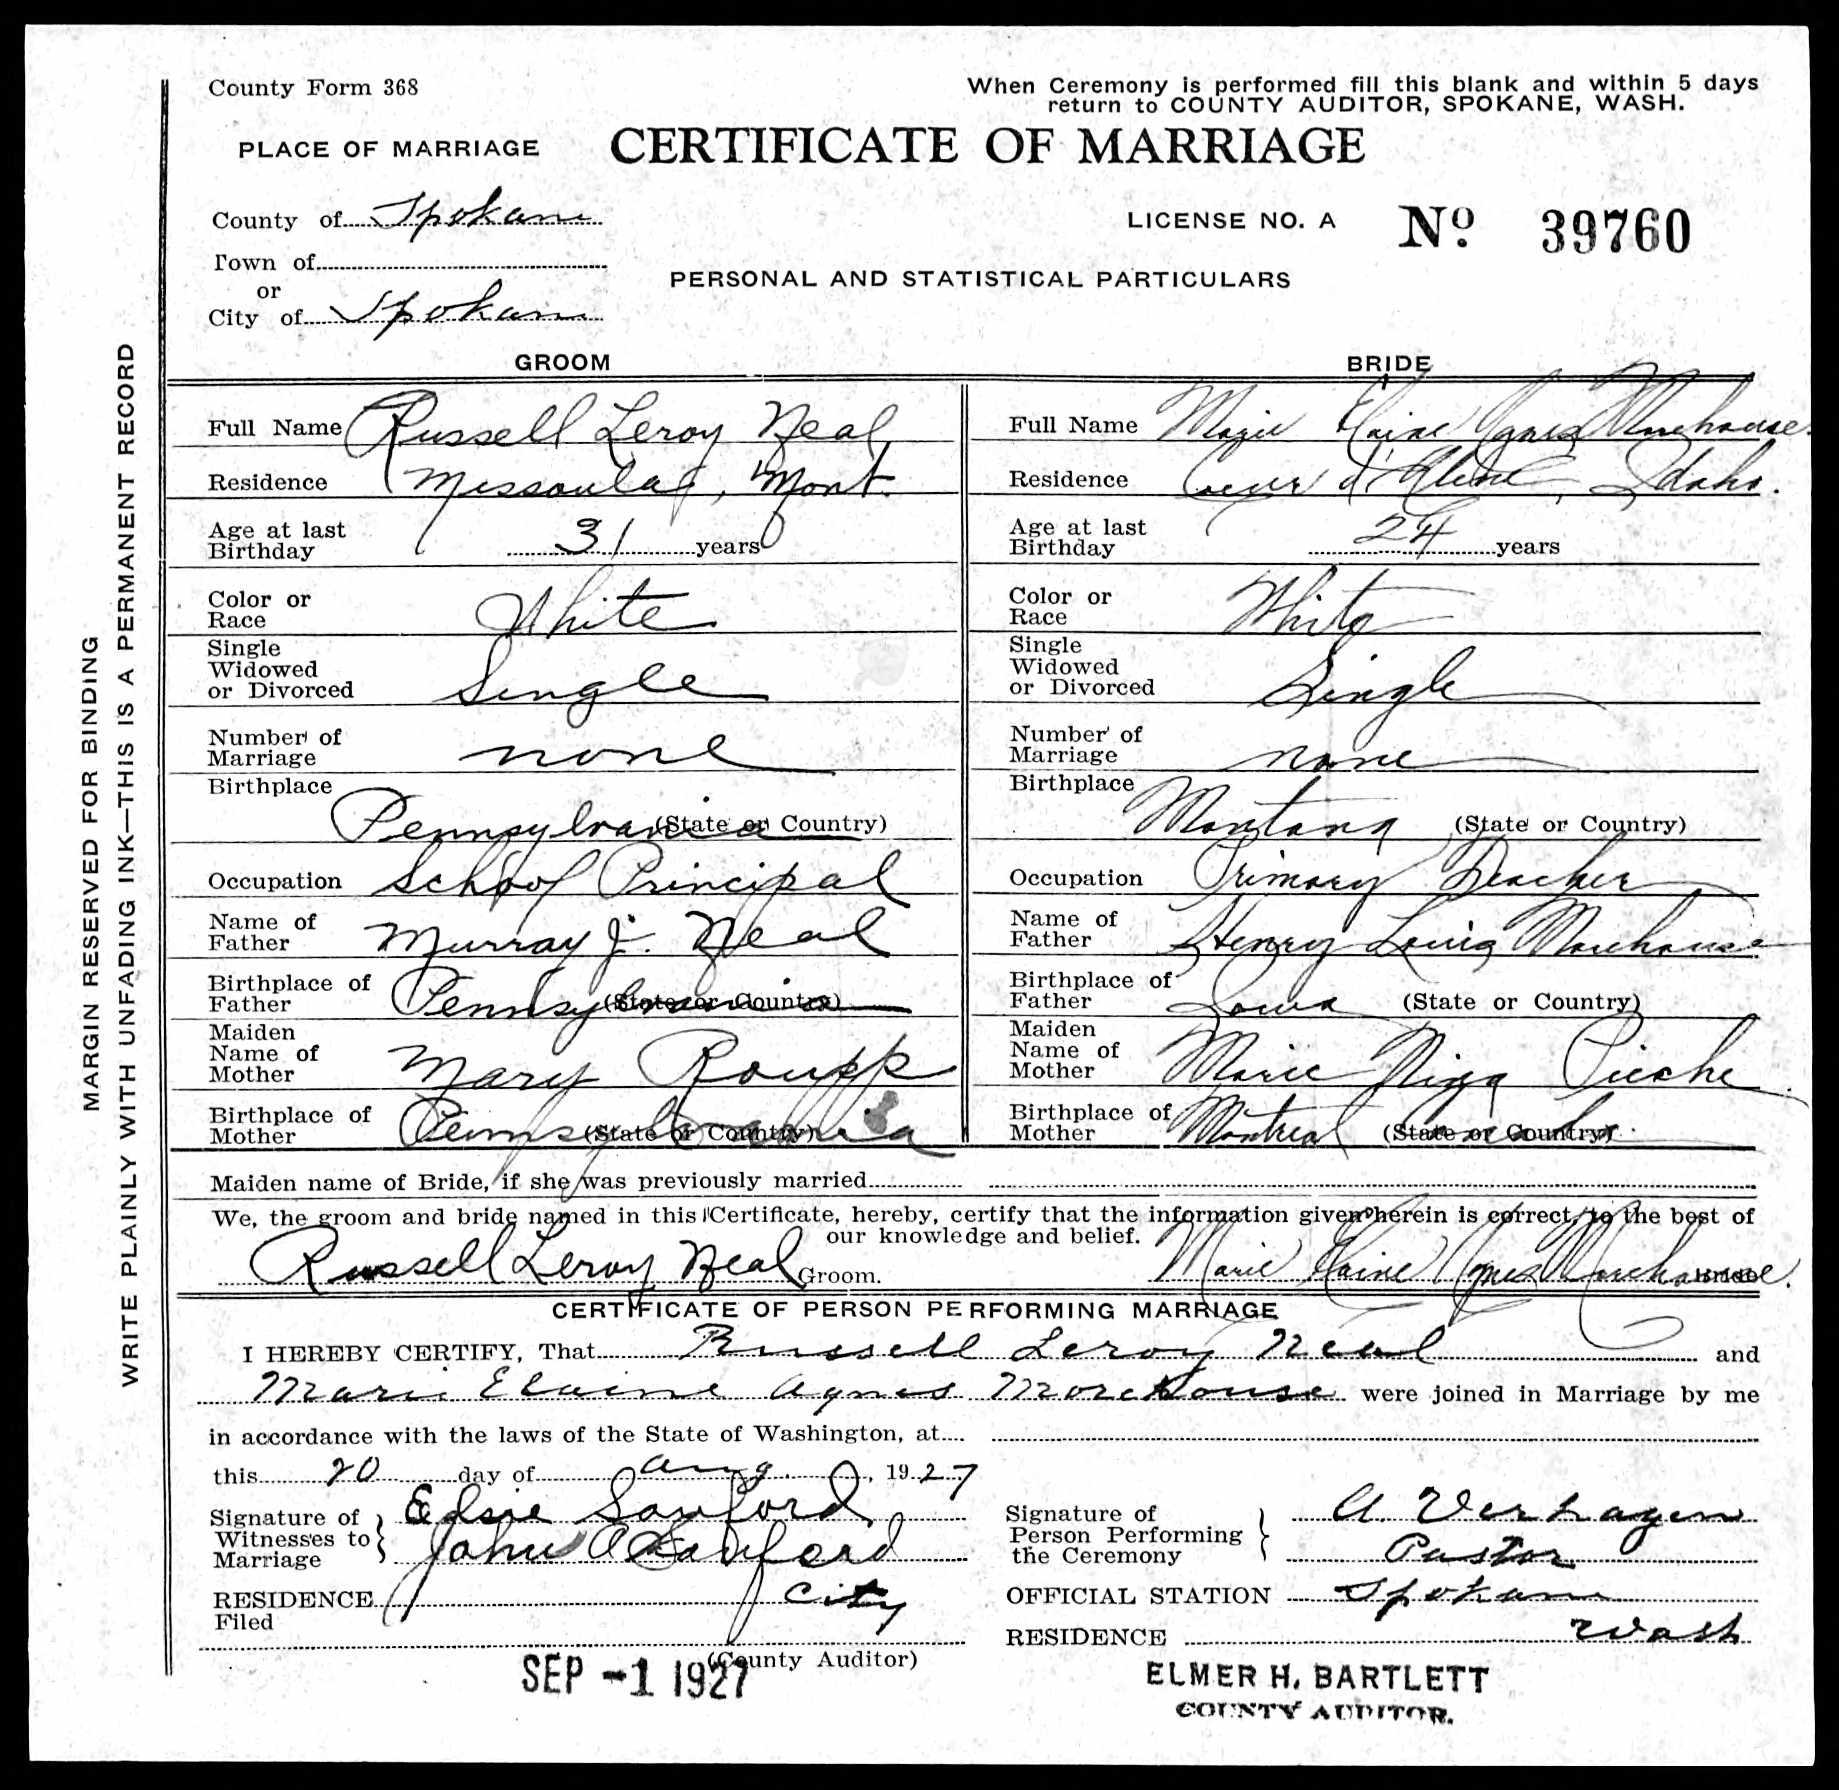 County Form 368
When Ceremony is performed fill this blank and within 5 days
return to COUNTY AUDITOR, SPOKANE, WASH.
PLACE OF MARRIAGE
CERTIFICATE OF MARRIAGE
County of Spokane
LICENSE NO. A Nº 39760
Town of
or
PERSONAL AND STATISTICAL PARTICULARS
City of Spokane
MARGIN RESERVED FOR BINDING
WRITE PLAINLY WITH UNFADING INK—THIS IS A PERMANENT RECORD
GROOM
Full Name Russell Leroy Neal
Residence Missoula, Mont.
Age at last
Birthday 31 years
Color or
Race White
Single
Widowed
or Divorced Single
Number of
Marriage none
Birthplace
Pennsylvania (State or Country)
Occupation School Principal
Name of
Father Murray J. Neal
Birthplace of
Father Pennsylvania (State or Country)
Maiden
Name of
Mother Mary Roupp
Birthplace of
Mother Pennsylvania (State or Country)
BRIDE
Full Name Marie Elaine Agnes Morehouse
Residence Coeur d'Alene, Idaho.
Age at last
Birthday 24 years
Color or
Race White
Single
Widowed
or Divorced Single
Number of
Marriage none
Birthplace
Montana (State or Country)
Occupation Primary Teacher
Name of
Father Henry Louis Morehouse
Birthplace of
Father Iowa (State or Country)
Maiden
Name of
Mother Marie Piche
Birthplace of
Mother Montreal Canada (State or Country)
Maiden name of Bride, if she was previously married
We, the groom and bride named in this Certificate, hereby, certify that the information given herein is correct, to the best of
our knowledge and belief.
Russell Leroy Neal Groom. Marie Elaine Agnes Morehouse. Bride
CERTIFICATE OF PERSON PERFORMING MARRIAGE
I HEREBY CERTIFY, That Russell Leroy Neal and
Marie Elaine Agnes Morehouse were joined in Marriage by me
in accordance with the laws of the State of Washington, at
this 20 day of Aug. , 1927
Signature of
Witnesses to
Marriage
Elsie Sanford
John Sanford
RESIDENCE City
Filed
(County Auditor)
SEP -1 1927
Signature of
Person Performing
the Ceremony
A. Verhagen
Pastor
OFFICIAL STATION Spokane
RESIDENCE Wash
ELMER H. BARTLETT
COUNTY AUDITOR.